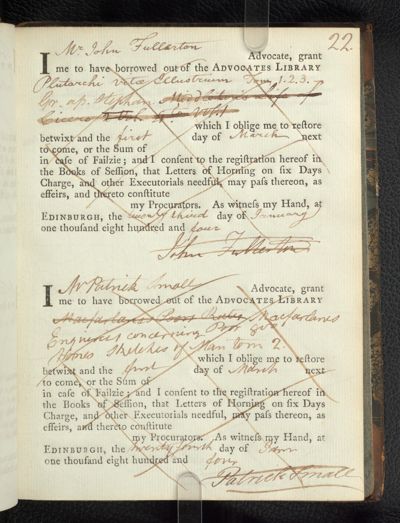 22.
I Mr John Fullarton Advocate, grant
me to have borrowed out of the ADVOCATES LIBRARY
Plutarchi vitæ Illustrium Tom. 1. 2. 3.
Gr. ap. Stephan. Middleton's Life of
Cicero
which I oblige me to reſtore
betwixt and the first day of March next
to come, or the Sum of
in caſe of Failzie; and I conſent to the regiſtration hereof in
the Books of Seſſion, that Letters of Horning on ſix Days
Charge, and other Executorials needful, may paſs thereon, as
effeirs, and thereto conſtitute
my Procurators. As witneſs my Hand, at
EDINBURGH, the twenty third day of January
one thouſand eight hundred and four
John Fullarton
I Mr Patrick Small Advocate, grant
me to have borrowed out of the ADVOCATES LIBRARY
Macfarlanes
Enquiries concerning Poor 8vo
Homes Sketches of Man tom 2.
which I oblige me to reſtore
betwixt and the first day of March next
to come, or the Sum of
in caſe of Failzie; and I conſent to the regiſtration hereof in
the Books of Seſſion, that Letters of Horning on ſix Days
Charge, and other Executorials needful, may paſs thereon, as
effeirs, and thereto conſtitute
my Procurators. As witneſs my Hand, at
EDINBURGH, the twenty fourth day of Janr
one thouſand eight hundred and four
Patrick Small